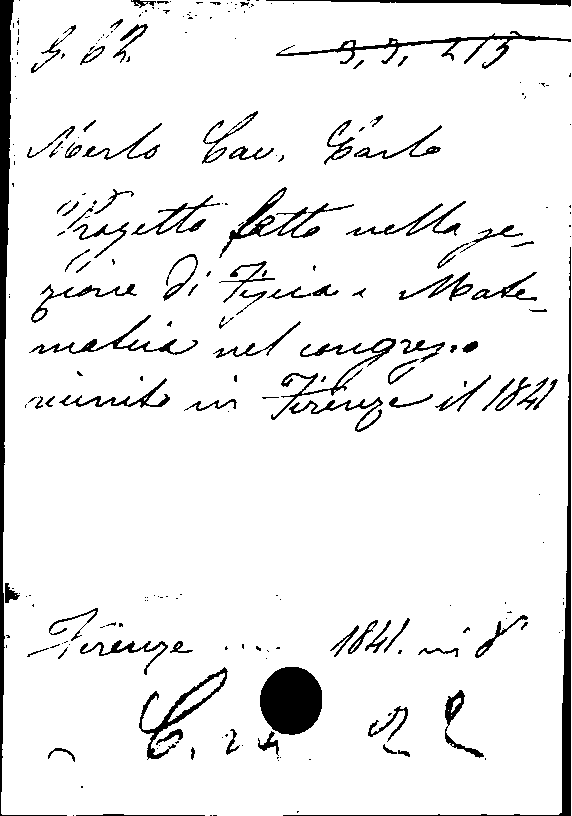 G. 62. 3, 3, 215
Merlo Cav. Carlo
Progetto fatto nella se_
zione di Fisica e Mate_
matica nel congresso
riunito in Firenze il 1841
Firenze .... 1841. in 8°
C. 24 22